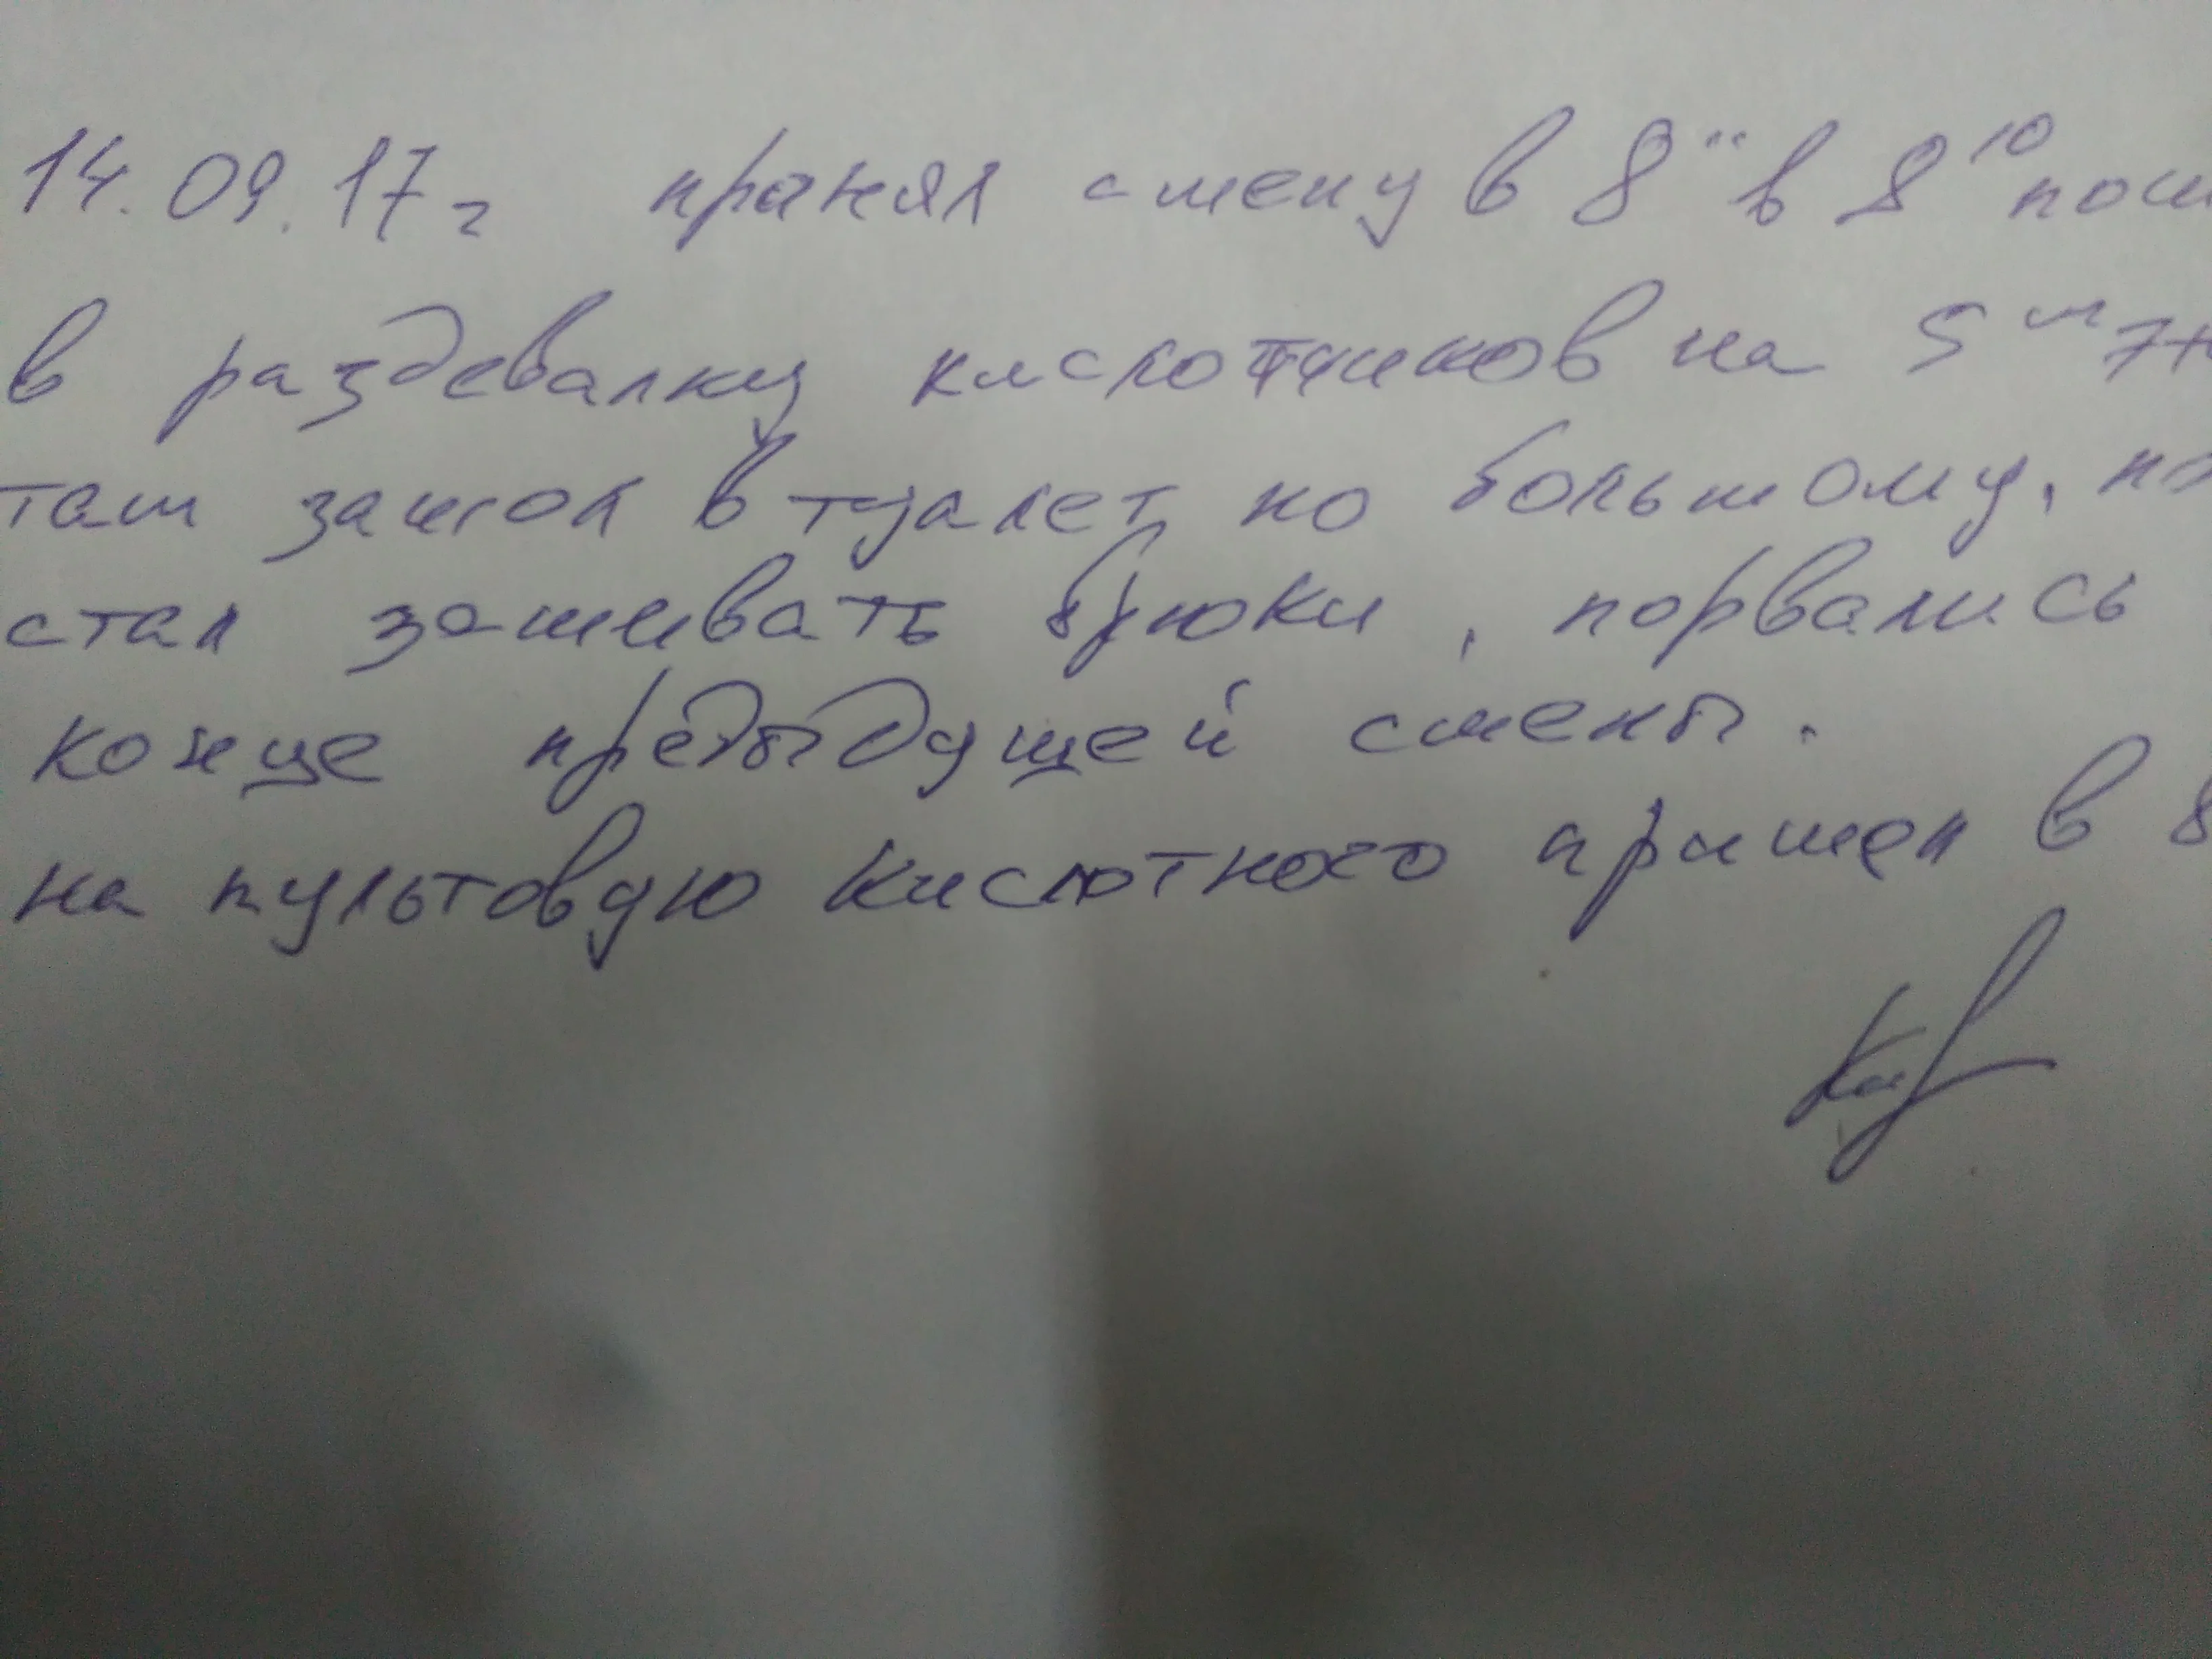 14.09.17г принял смену в 8⁰⁰ в 8¹⁰ пош
в раздевалку кислотчиков на 5
там зашол в туалет по большому, по
стал зашивать брюки, порвались
конце предыдущей смены.
на пультовую кислотного пришел в 8